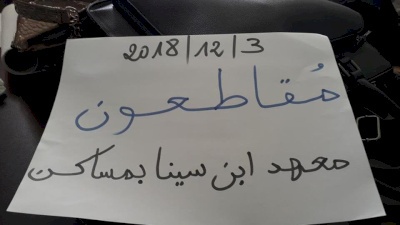 2018/12/3
مُقاطعون
معهد ابن سينا بمساكن